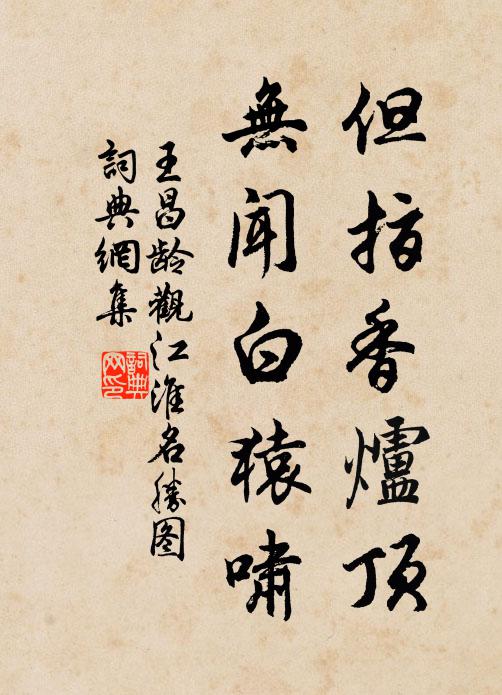 但指香爐顶
無闻白猿啸
王昌龄觀江淮名勝图
詞典網集
詞典网印